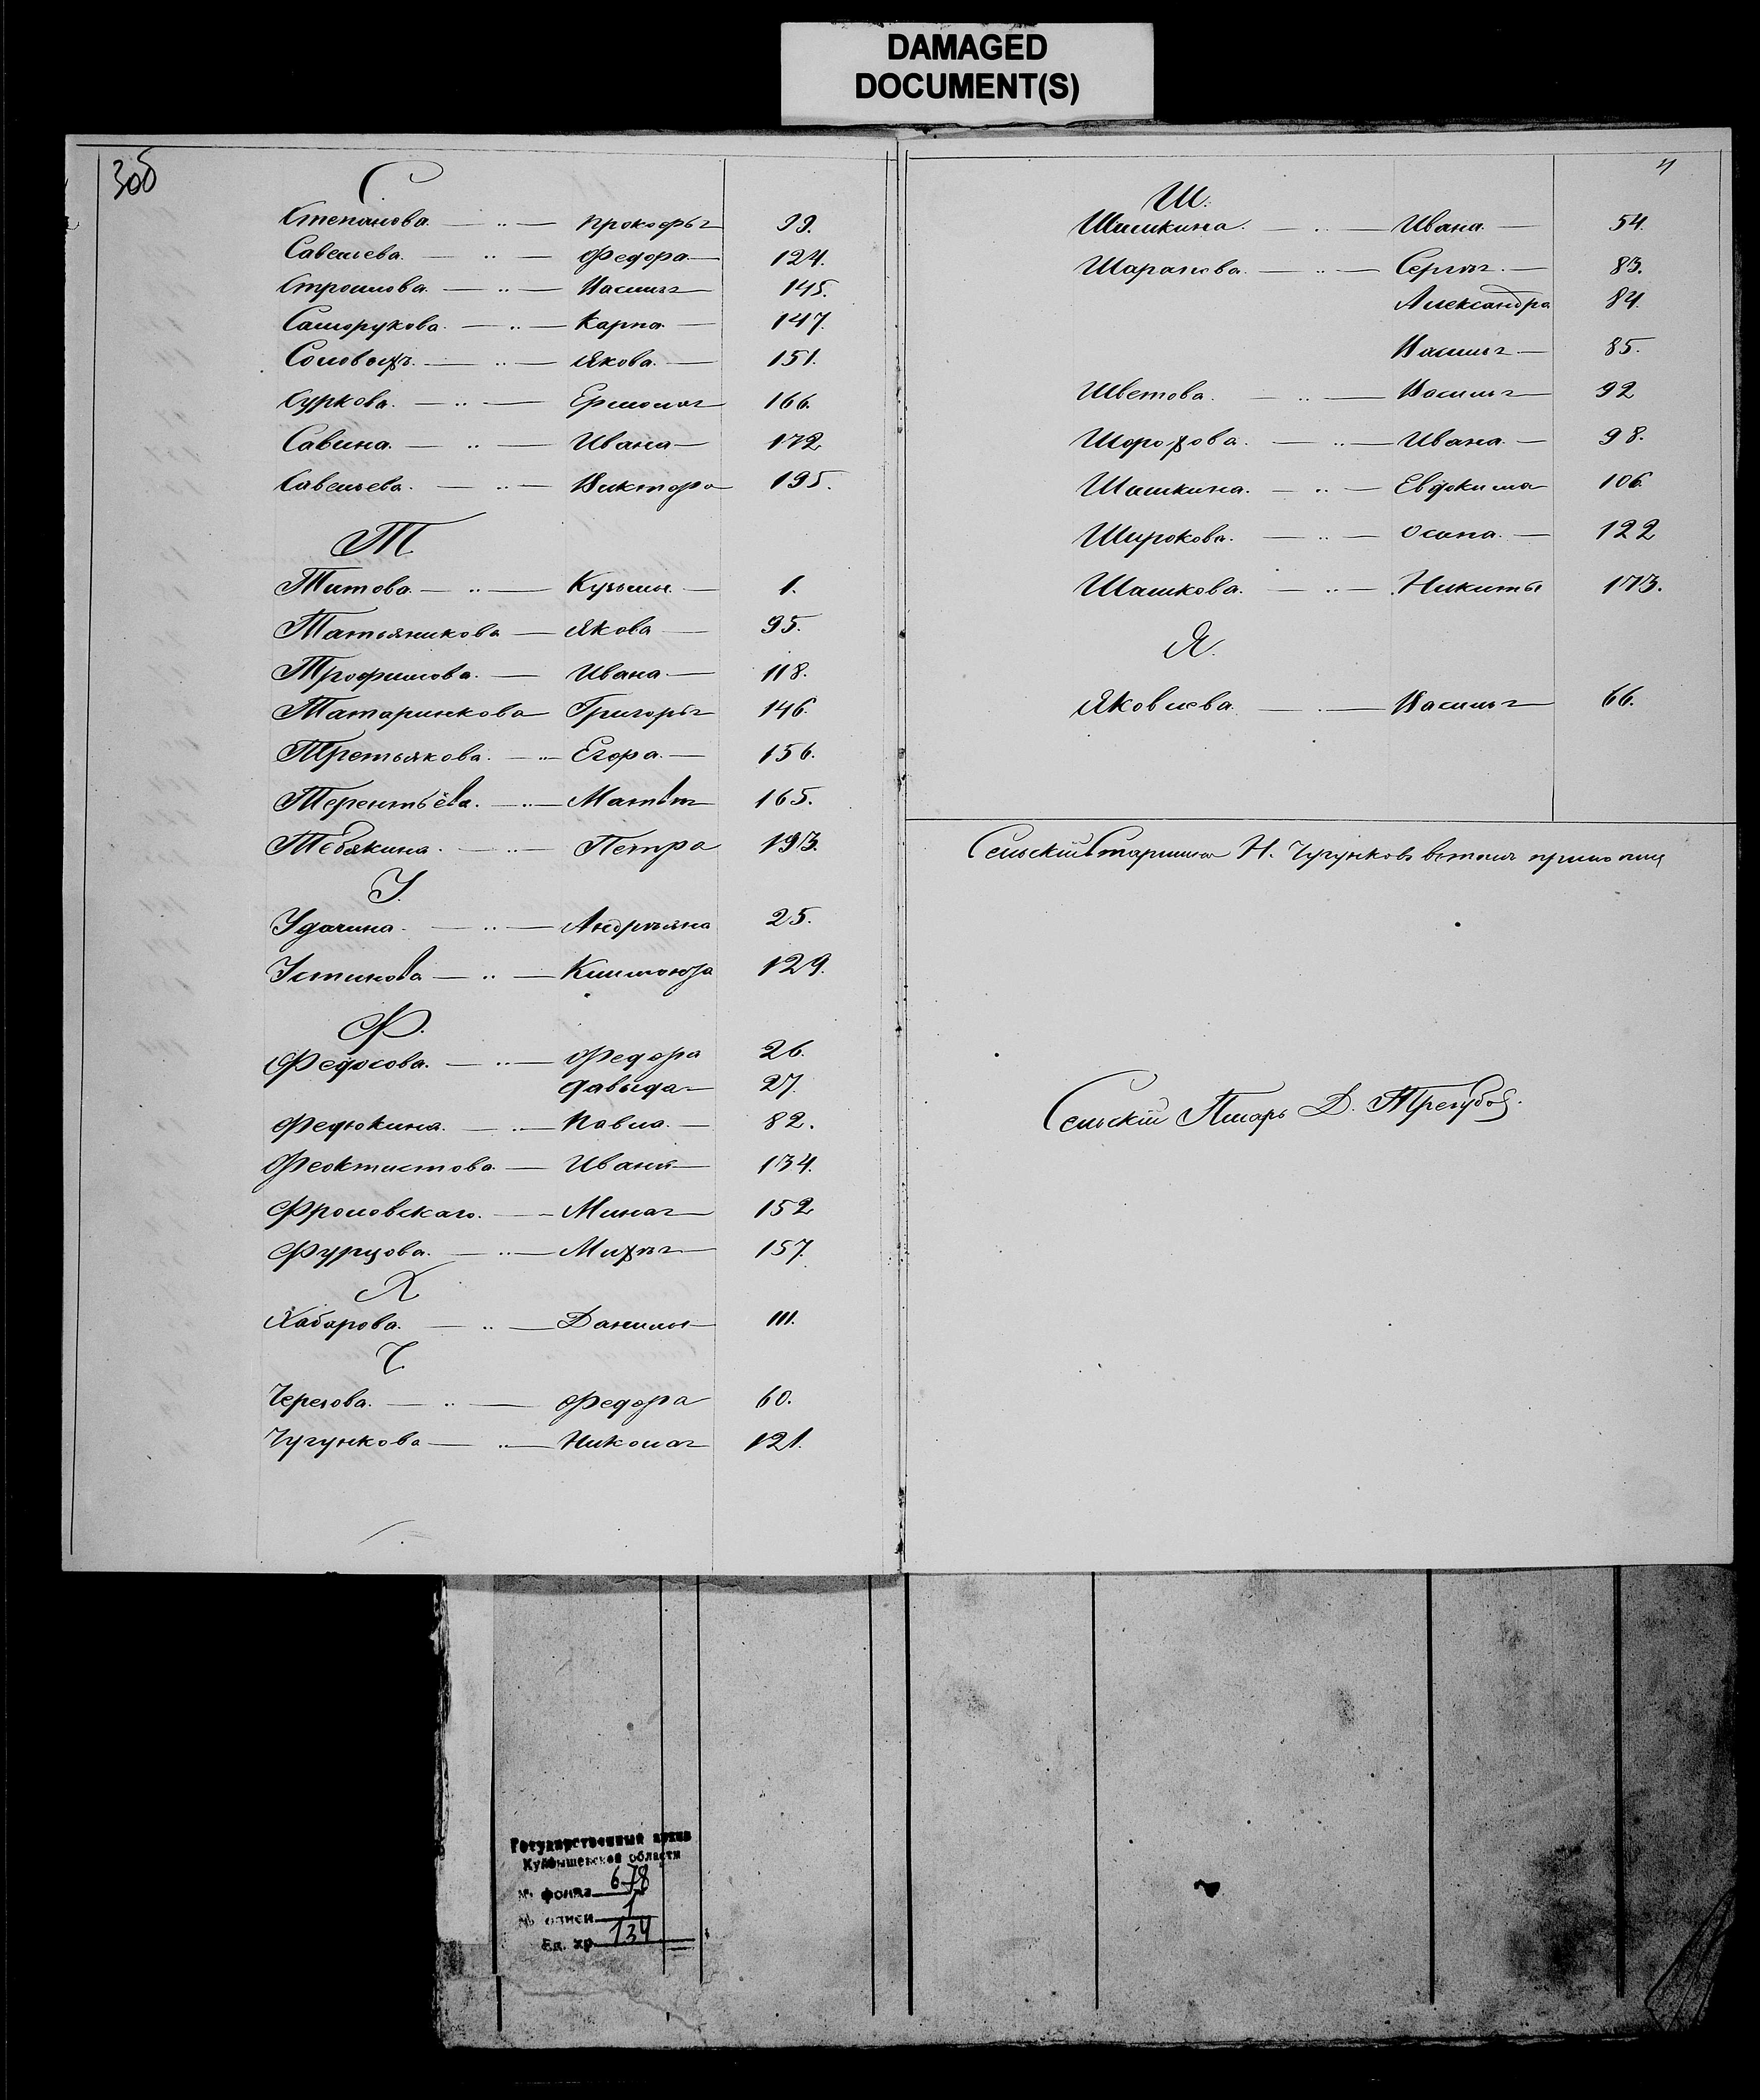 DAMAGED
DOCUMENT(S)
3об
С
Степанова. — „ — Прокофья 99.
Савельева. — „ — Федора — 124.
Строилова. — „ — Василья 145.
Саморукова. — „ — Карпа — 147.
Соловыхъ. — „ — Якова. — 151.
Суркова. — „ — Ермолая 166.
Савина. — „ — Ивана — 172
Савельева. — „ — Виктора 195.
Т
Титова — „ — Кузьмы — 1.
Татьяникова — Якова — 95.
Трофимова. — Ивана — 118.
Татаринкова Григорья 146.
Третьякова. — „ — Егора. — 156.
Терентьева. — „ — Матвѣя 165.
Тебякина. — „ — Петра 193.
У.
Удачина. — „ — Андрѣяна 25.
Устинова — „ — 129.
Ф.
Федосова. — „ — Федора 26.
Давыда — 27.
Федюкина. — „ — Павла. — 82.
Феоктистова. — Ивана — 134.
Фроловскаго. — Миная 152
Фурцова. — „ — Михѣя — 157.
Х
Хабарова. — „ — Данилы — 111.
Ч
Черезова. — „ — Федора 60.
Чугункова — „ — Николая 121.
4
Ш.
Шишкина. — „ — Ивана. — 54.
Шарапова. — „ — Сергѣя. — 83.
Александра 84.
Василья — 85.
Шветова. — „ — Василья 92
Шорохова. — „ — Ивана. — 98.
Шашкина. — „ — Евдокима 106.
Широкова. — „ — Осипа. — 122
Шашкова. — „ — Никиты 173.
Я.
Яковлева. — „ — Василья 66.
Сельскій Старшина Н. Чугунковъ
Сельскій Писарь Д. Трегубов.
Государственный архив
Куйбышевской области
№ фонда 678
№ описи 1
Ед. хр. 134